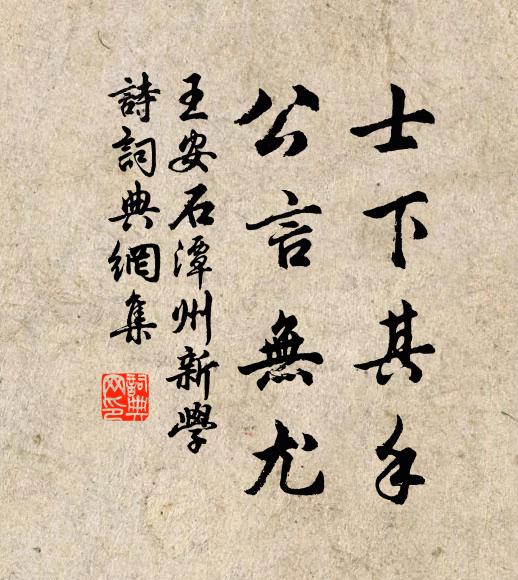 士下其手
公言無尤
王安石潭州新學
詩詞典網集
詞典
网印